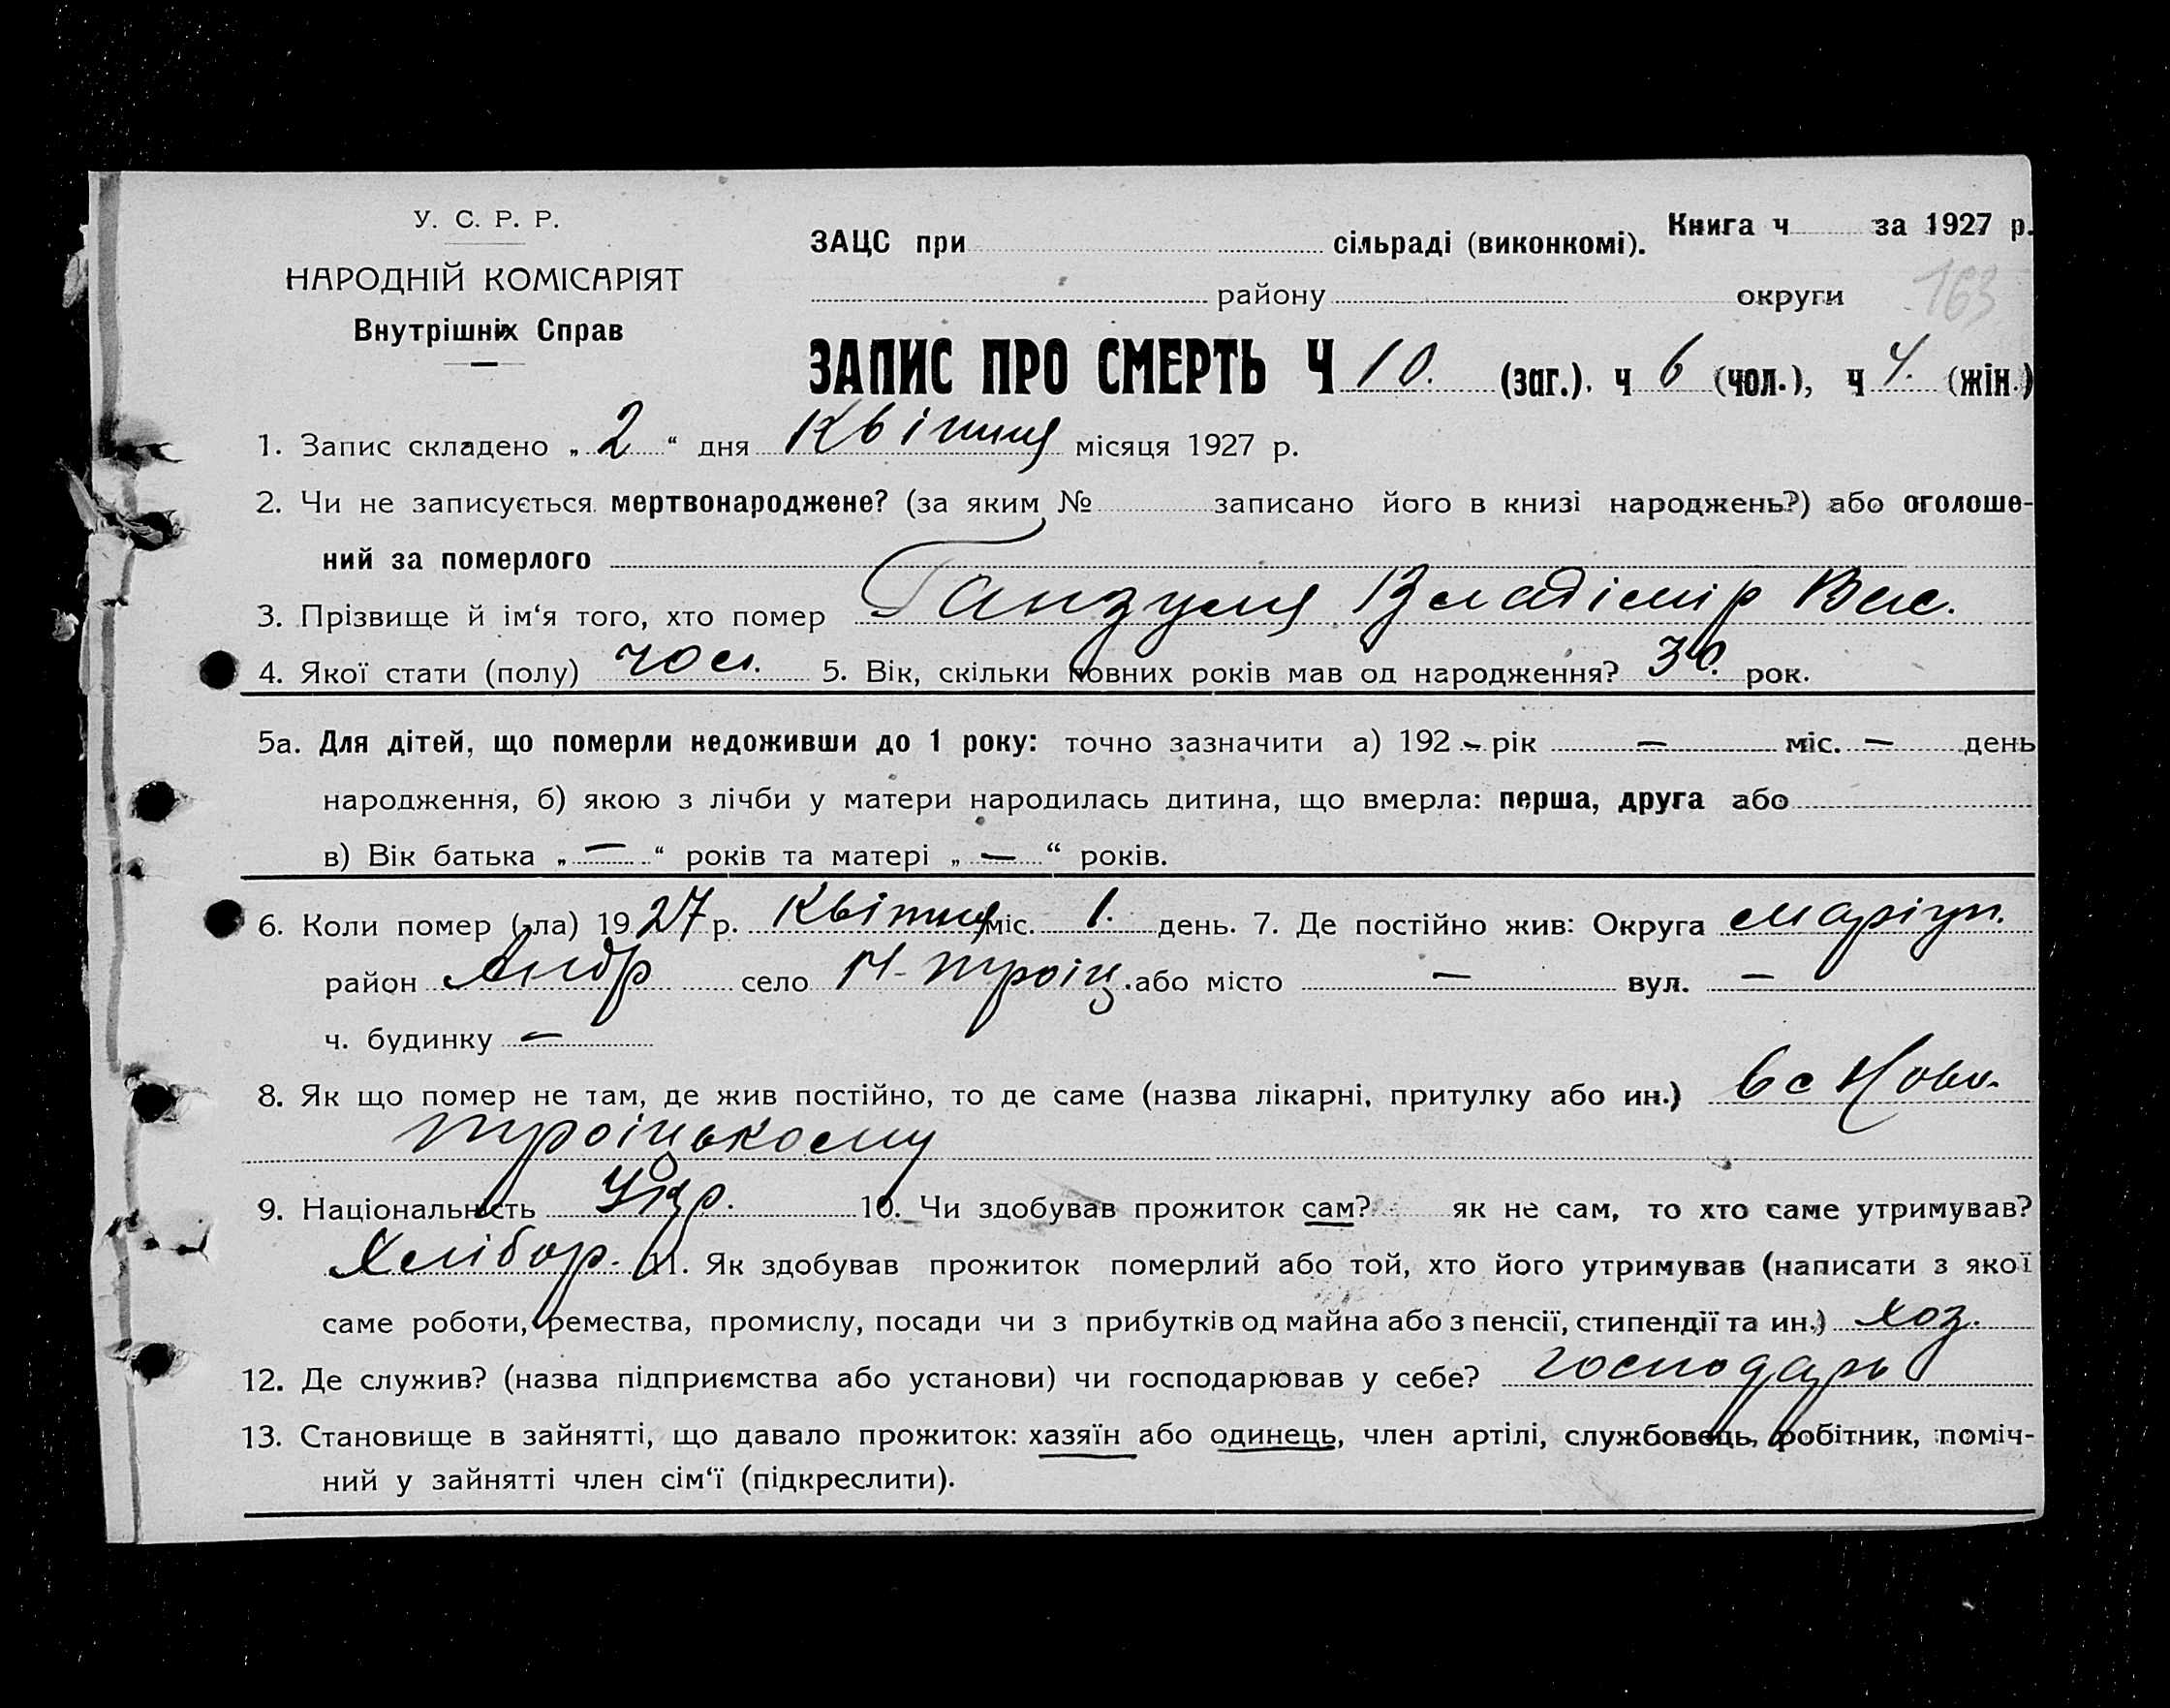 У. С. Р. Р.
НАРОДНІЙ КОМІСАРІЯТ
Внутрішніх Справ
Книга ч за 1927 р.
ЗАЦС при сільраді (виконкомі).
району округи
163
ЗАПИС ПРО СМЕРТЬ Ч 10. (заг.). ч 6 (чол.), ч 4. (жін.)
1. Запис складено „ 2 “ дня Квітня місяця 1927 р.
2. Чи не записується мертвонароджене? (за яким № записано його в книзі народжень?) або оголоше-
ний за померлого
3. Прізвище й ім‘я того, хто помер Ганзуля Владімір Вас.
4. Якої стати (полу) чол. 5. Вік, скільки повних років мав од народження? рок.
5а. Для дітей, що померли недоживши до 1 року: точно зазначити а) 192 – рік — міс. — день
народження, б) якою з лічби у матери народилась дитина, що вмерла: перша, друга або
в) Вік батька „ — “ років та матері „ — “ років.
6. Коли помер (-ла) 1927 р. Квітня міс. 1. день. 7. Де постійно жив: Округа Маріуп.
район Андр село Н-Троіц. або місто — вул. —
ч. будинку —
8. Як що помер не там, де жив постійно, то де саме (назва лікарні, притулку або ин.) в с Ново-
Троіцькому
9. Національність Укр. 10. Чи здобував прожиток сам? як не сам, то хто саме утримував?
Хлібор. 11. Як здобував прожиток померлий або той, хто його утримував (написати з якої
саме роботи, ремества, промислу, посади чи з прибутків од майна або з пенсії, стипендії та ин.) хоз.
12. Де служив? (назва підприємства або установи) чи господарював у себе? господарь
13. Становище в зайнятті, що давало прожиток: хазяїн або одинець, член артілі, службовець, робітник, поміч-
ний у зайнятті член сім‘ї (підкреслити).